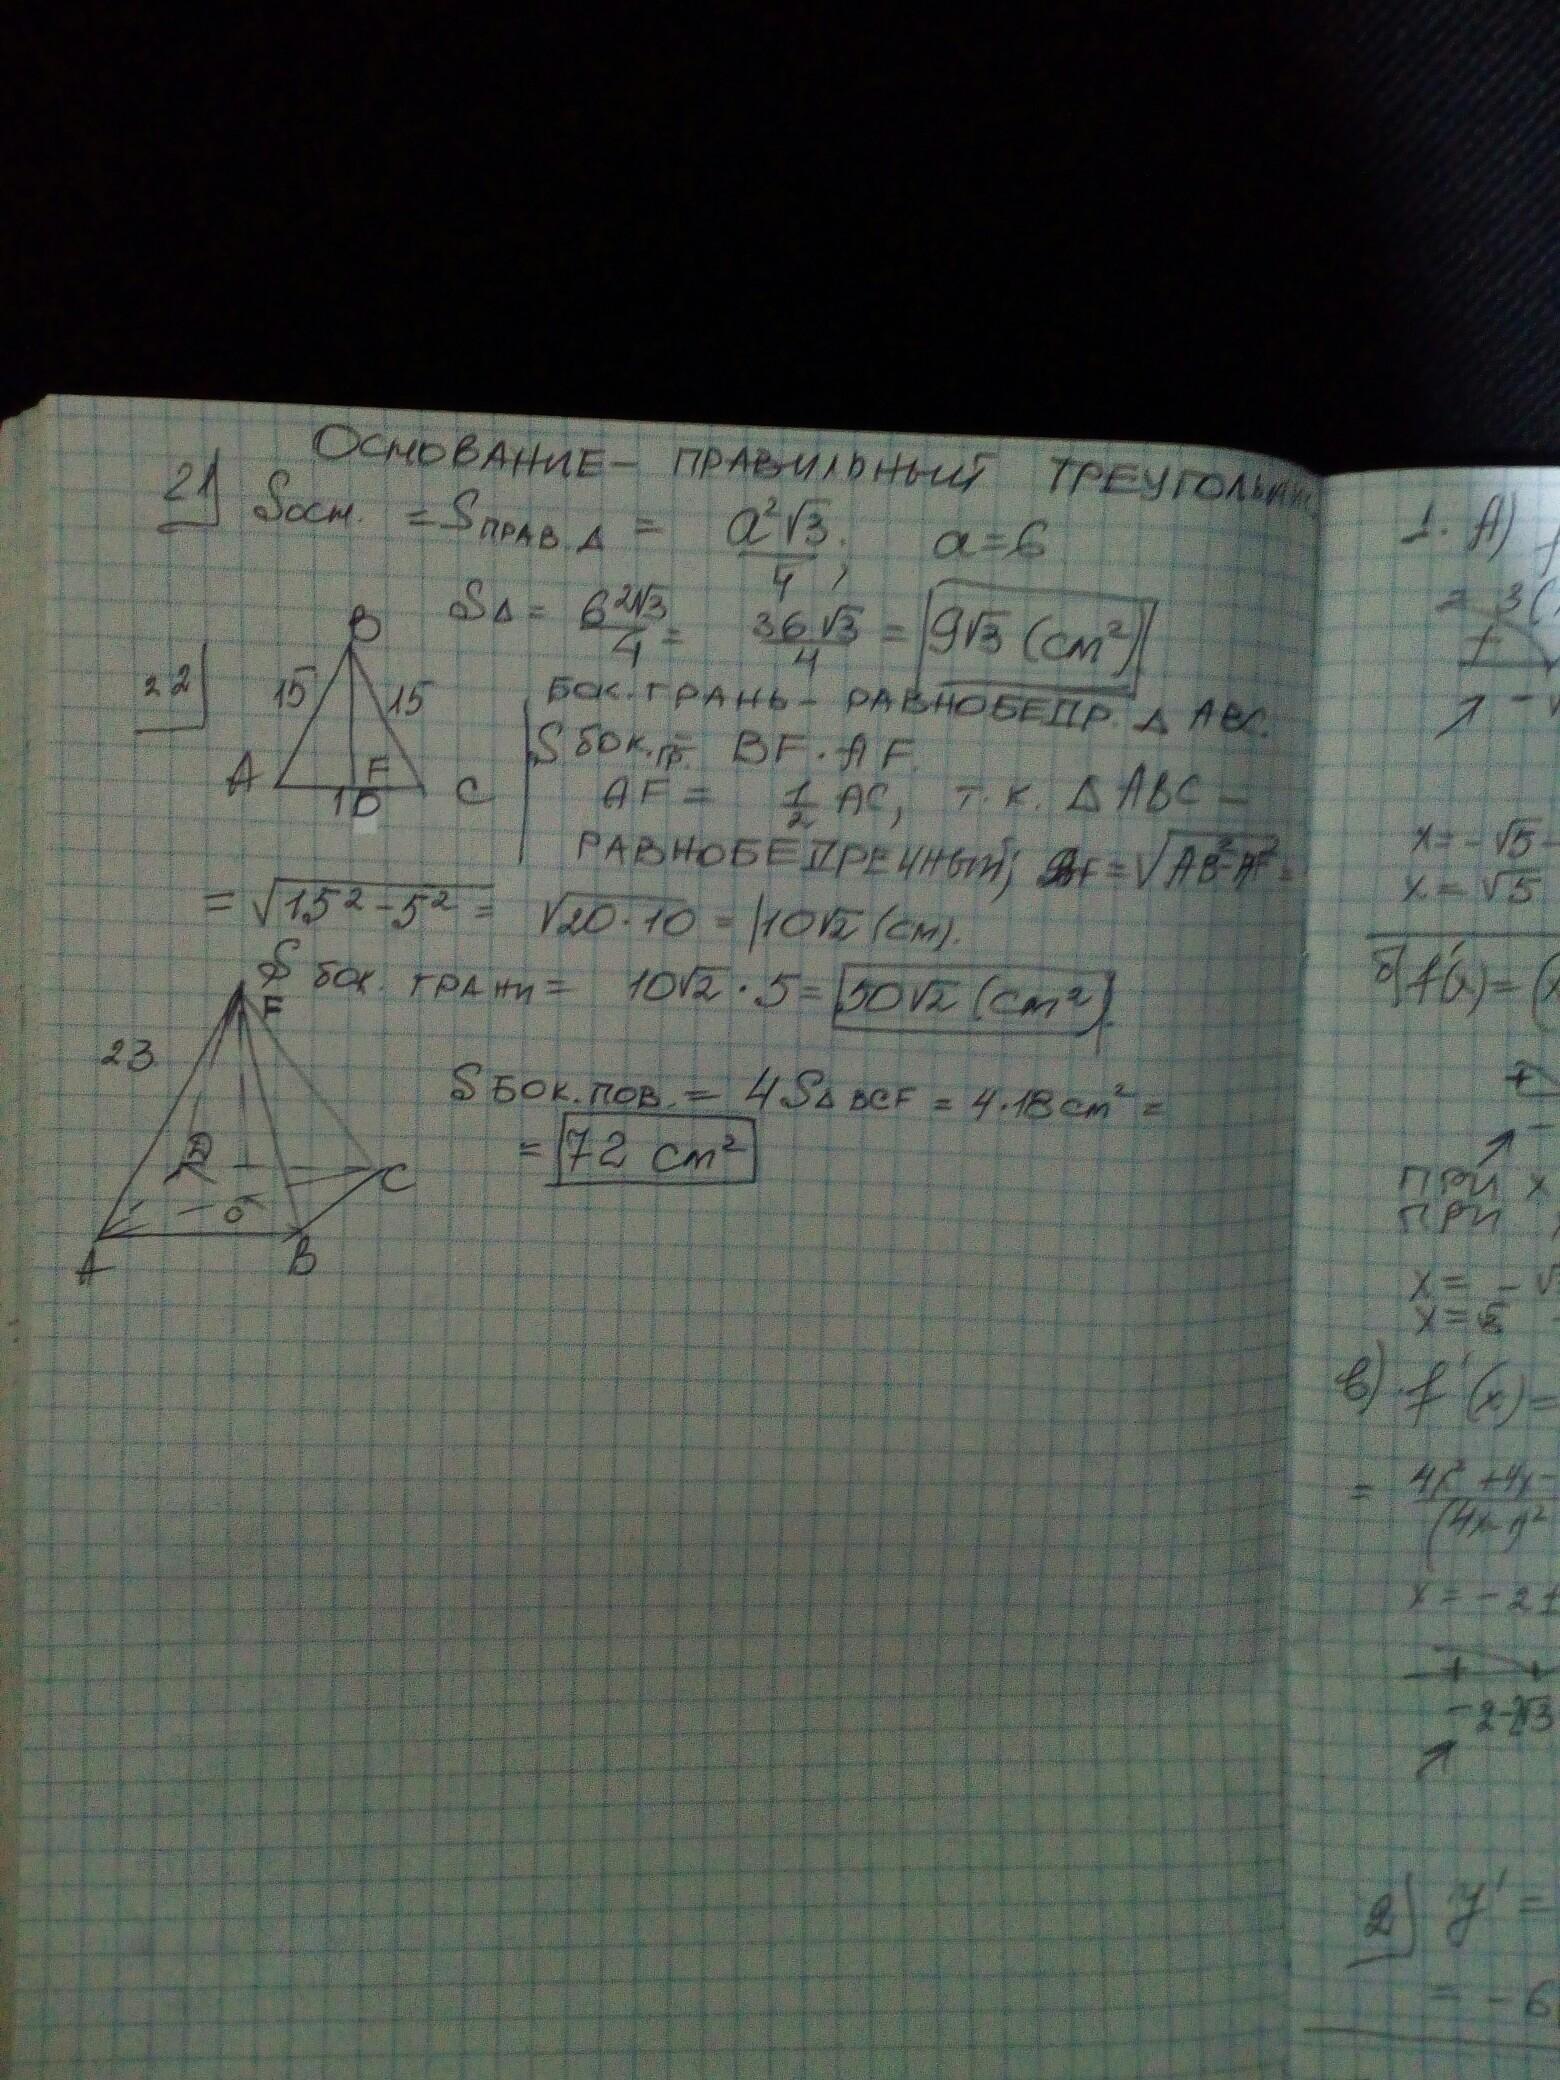 ОСНОВАНИЕ – ПРАВИЛЬНЫЙ
21) Sосн. = Sправ. Δ = a²√3/4; a=6
SΔ = 6²√3/4 = 36√3/4 = 9√3 (см²)
22)
B
15 15
A F C
10
БОК. ГРАНЬ – РАВНОБЕДР. Δ ABC.
S бок. гр. = BF · AF.
AF = 1/2 AC, т.к. Δ ABC –
РАВНОБЕДРЕННЫЙ; BF = √AB²-AF² =
= √15² – 5² = √20·10 = 10√2 (см).
S бок. грани = 10√2 · 5 = 50√2 (см²)
23.
F
S бок. пов. = 4SΔ BCF = 4·18 см² =
= 72 см²
C
O
A B
1. А)
= 3(
+
x = -√5
x = √5
б) f'(x) = (x
+
ПРИ x
ПРИ
x = -√
в) f'(x) =
= 4x² + 4x -
x = -2 ±
+ +
-2-2√3
2) y' =
= -6